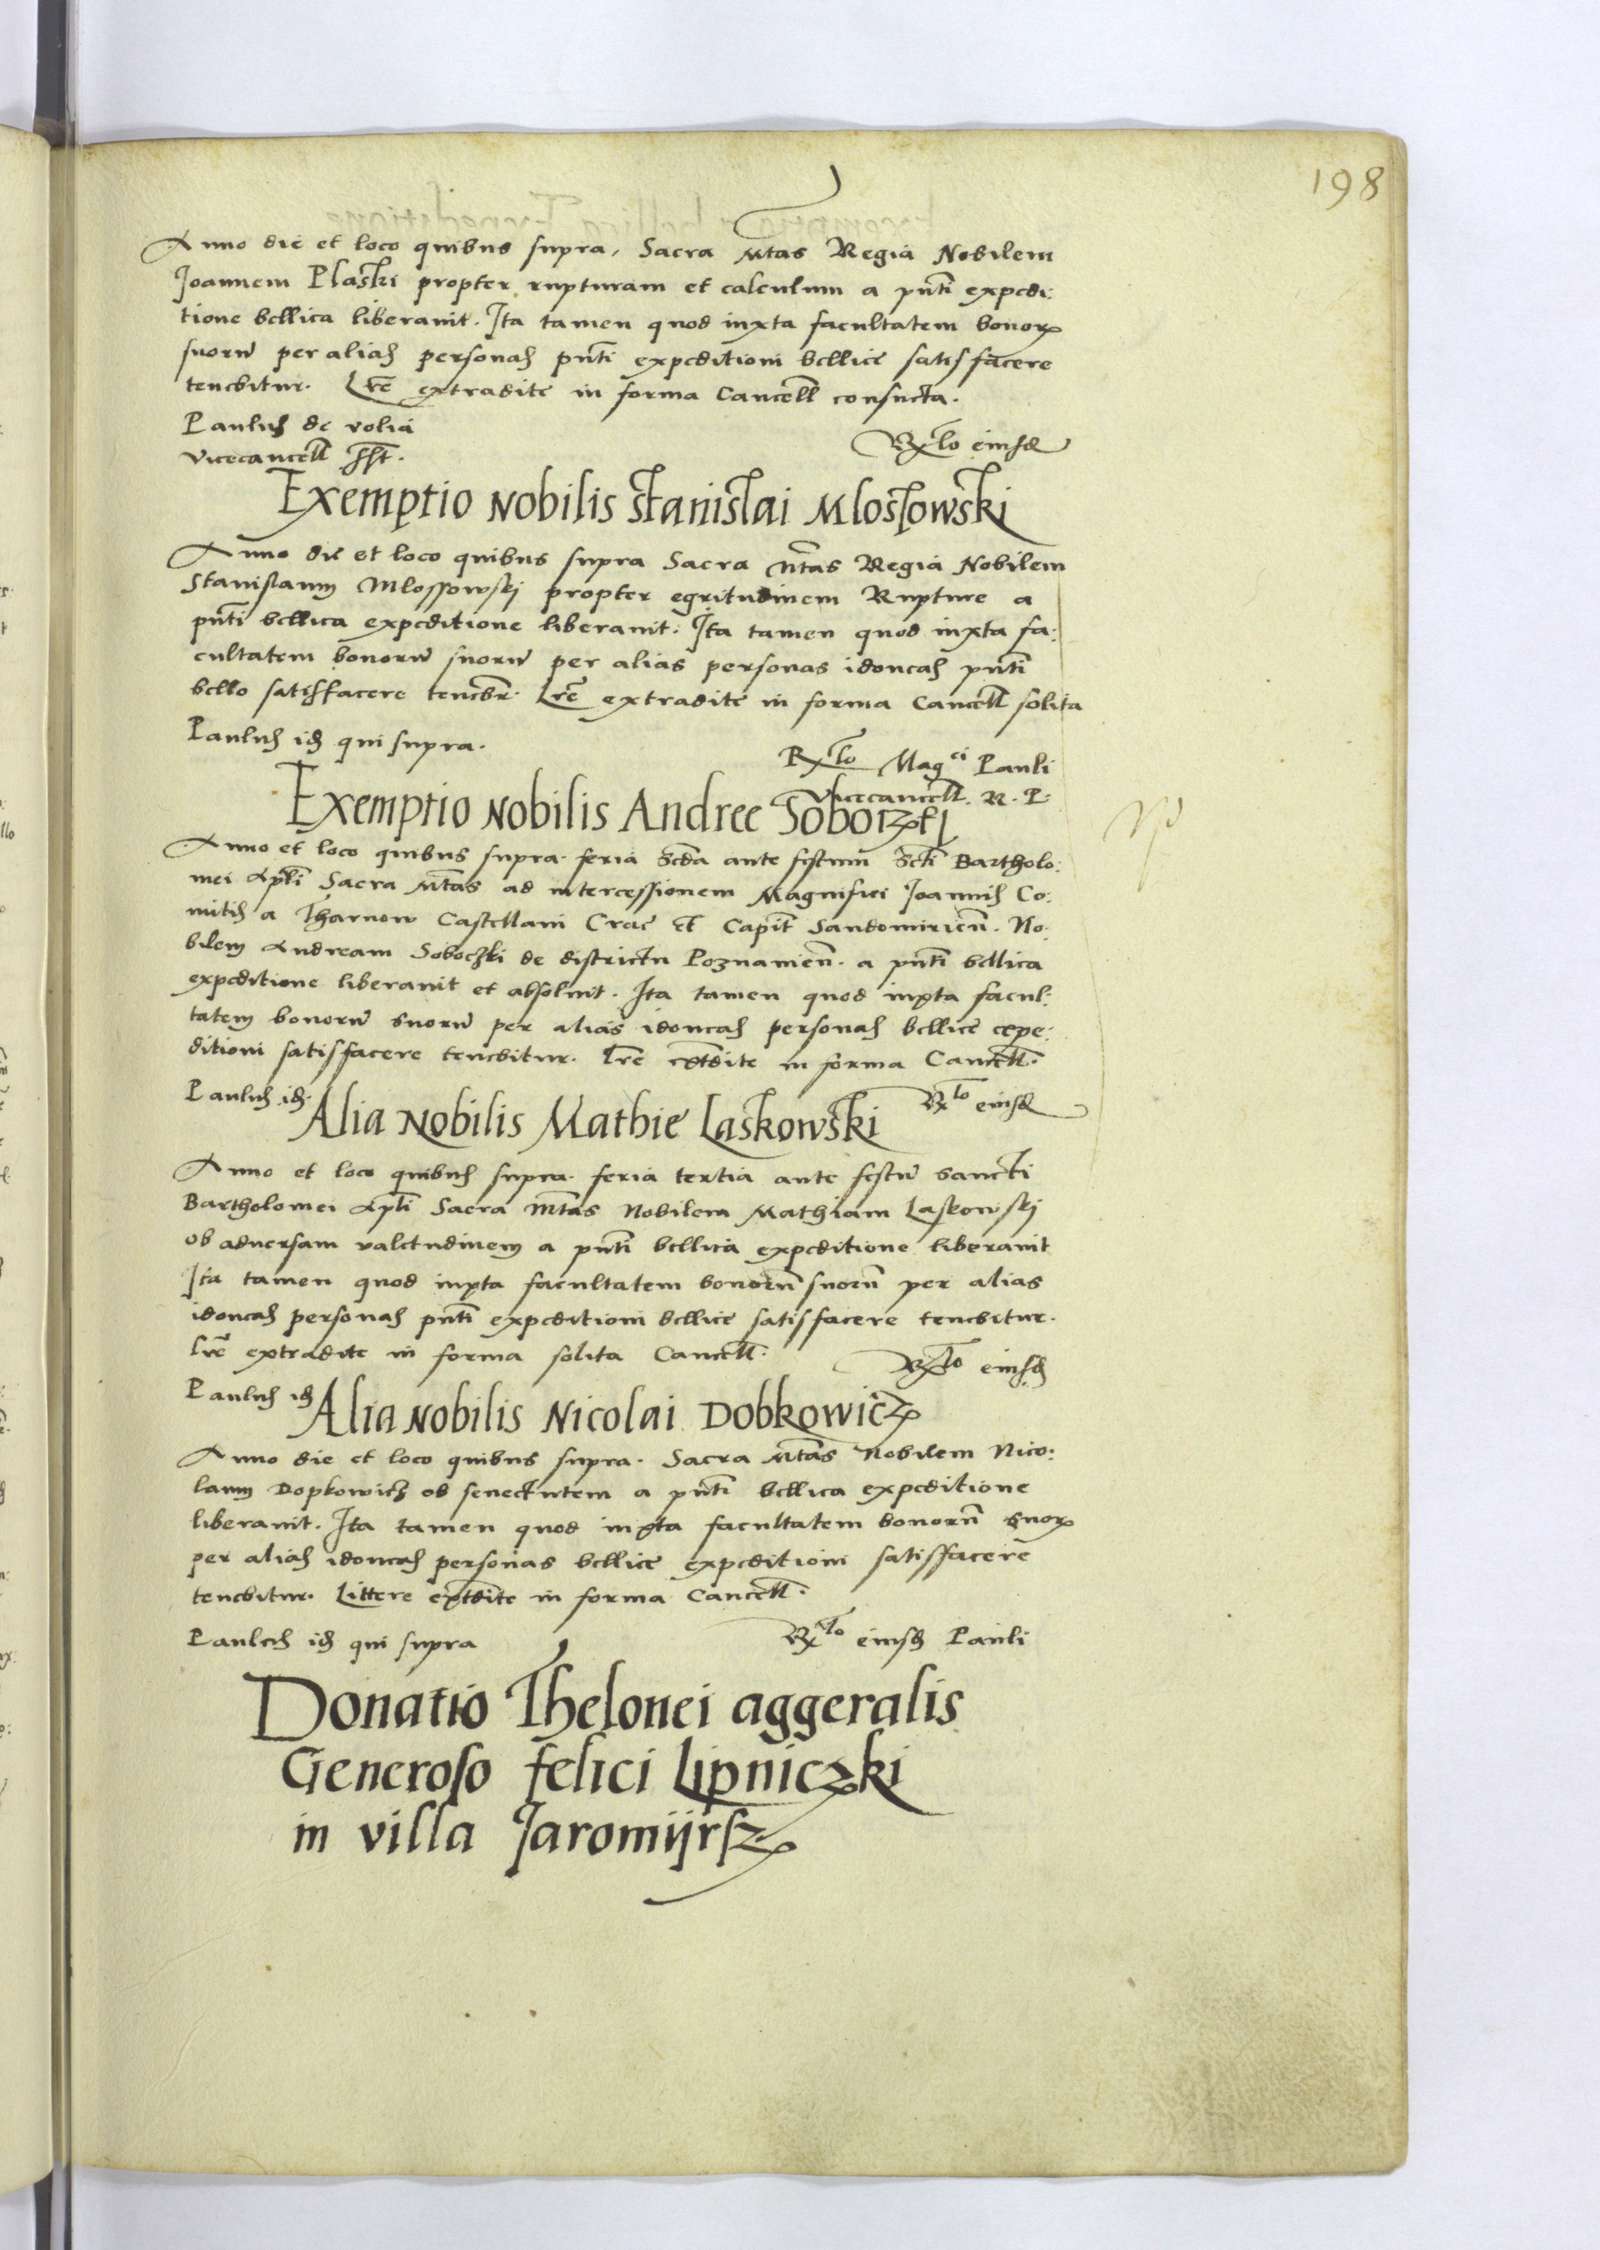 198
Anno die et loco quibus supra, Sacra Mtas Regia Nobilem
Joannem Plaski propter rupturam et calculum a pnti expedi:
tione bellica liberauit. Ita tamen quod iuxta facultatem bonorꝝ
suorũ per alias personas pnti expeditioni bellice satisfacere
tenebitur. Lre extradite in forma Cancell consueta.
Paulus de volia
vicecancell sst.
Rlo eiusd
Exemptio Nobilis Stanislai Mlosowski
Anno die et loco quibus supra Sacra Mtas Regia Nobilem
Stanislaum Mlossowski propter egritudinem Rupture a
pnti bellica expeditione liberauit. Ita tamen quod iuxta fa:
cultatem bonorũ suorũ per alias personas idoneas pnti
bello satisfacere tenebr. Lre extradite in forma Cancell solita
Paulus id qui supra.
Rlo Magci Pauli
vicecancell. R. P.
Exemptio Nobilis Andree Soboczki
Anno et loco quibus supra. feria Scda ante festum Scti Bartholo:
mei Apli Sacra Mtas ad intercessionem Magnifici Joannis Co:
mitis a Tharnow Castellani Crac et Capit Sandomirien. No:
bilem Andream Soboczki de districtu Poznanien. a pnti bellica
expeditione liberauit et absoluit. Ita tamen quod iuxta facul:
tatem bonorũ suorũ per alias idoneas personas bellice expe:
ditioni satisfacere tenebitur. Lre extdite in forma Cancell.
Paulus id.
Rlo eiusd
Alia Nobilis Mathie Laskowski
Anno et loco quibus supra. feria tertia ante festũ sancti
Bartholomei Apli Sacra Mtas Nobilem Mathiam Laskowski
ob aduersam valetudinem a pnti bellica expeditione liberauit
Ita tamen quod iuxta facultatem bonorũ suorũ per alias
idoneas personas pnti expeditioni bellice satisfacere tenebitur.
Lre extradite in forma solita Cancell.
Rlo eiusd
Paulus id
Alia Nobilis Nicolai Dobkowicz
Anno die et loco quibus supra. Sacra Mtas Nobilem Nico:
laum Dopkowicz ob senectutem a pnti bellica expeditione
liberauit. Ita tamen quod iuxta facultatem bonorũ suorꝝ
per alias idoneas personas bellice expeditioni satisfacere
tenebitur. Littere extdite in forma Cancell.
Paulus id qui supra
Rlo eiusd Pauli
Donatio Thelonei aggeralis
Generoso felici Lipniczki
in villa Jaromijrsz